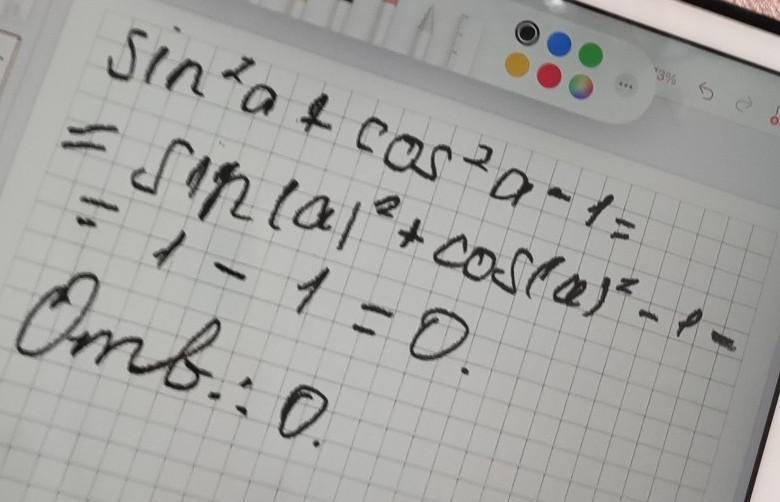 73%
sin²a + cos²a - 1 =
= sin(a)² + cos(a)² - 1 -
= 1 - 1 = 0.
Отв.: 0.